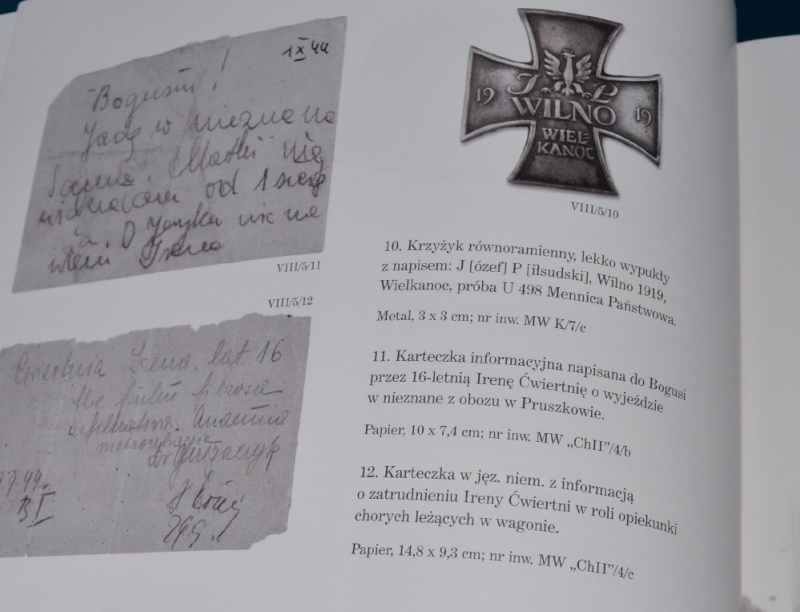 1 IX 44
Bogusiu!
Jadę w nieznane
Sama. Matki nie
widziałam od 1 sierp
nia. O Janku nic nie
wiem Irena
VIII/5/11
VIII/5/12
Ćwiertnia Irena. lat 16
infiltrativa. Anaemia
29.9.
B I
J P
19 19
WILNO
WIEL-
KANOC
VIII/5/10
10. Krzyżyk równoramienny, lekko wypukły
z napisem: J [ózef] P [iłsudski], Wilno 1919,
Wielkanoc, próba U 498 Mennica Państwowa.
Metal, 3 x 3 cm; nr inw. MW K/7/c
11. Karteczka informacyjna napisana do Bogusi
przez 16-letnią Irenę Ćwiertnię o wyjeździe
w nieznane z obozu w Pruszkowie.
Papier, 10 x 7,4 cm; nr inw. MW „ChII”/4/b
12. Karteczka w jęz. niem. z informacją
o zatrudnieniu Ireny Ćwiertni w roli opiekunki
chorych leżących w wagonie.
Papier, 14,8 x 9,3 cm; nr inw. MW „ChII”/4/c